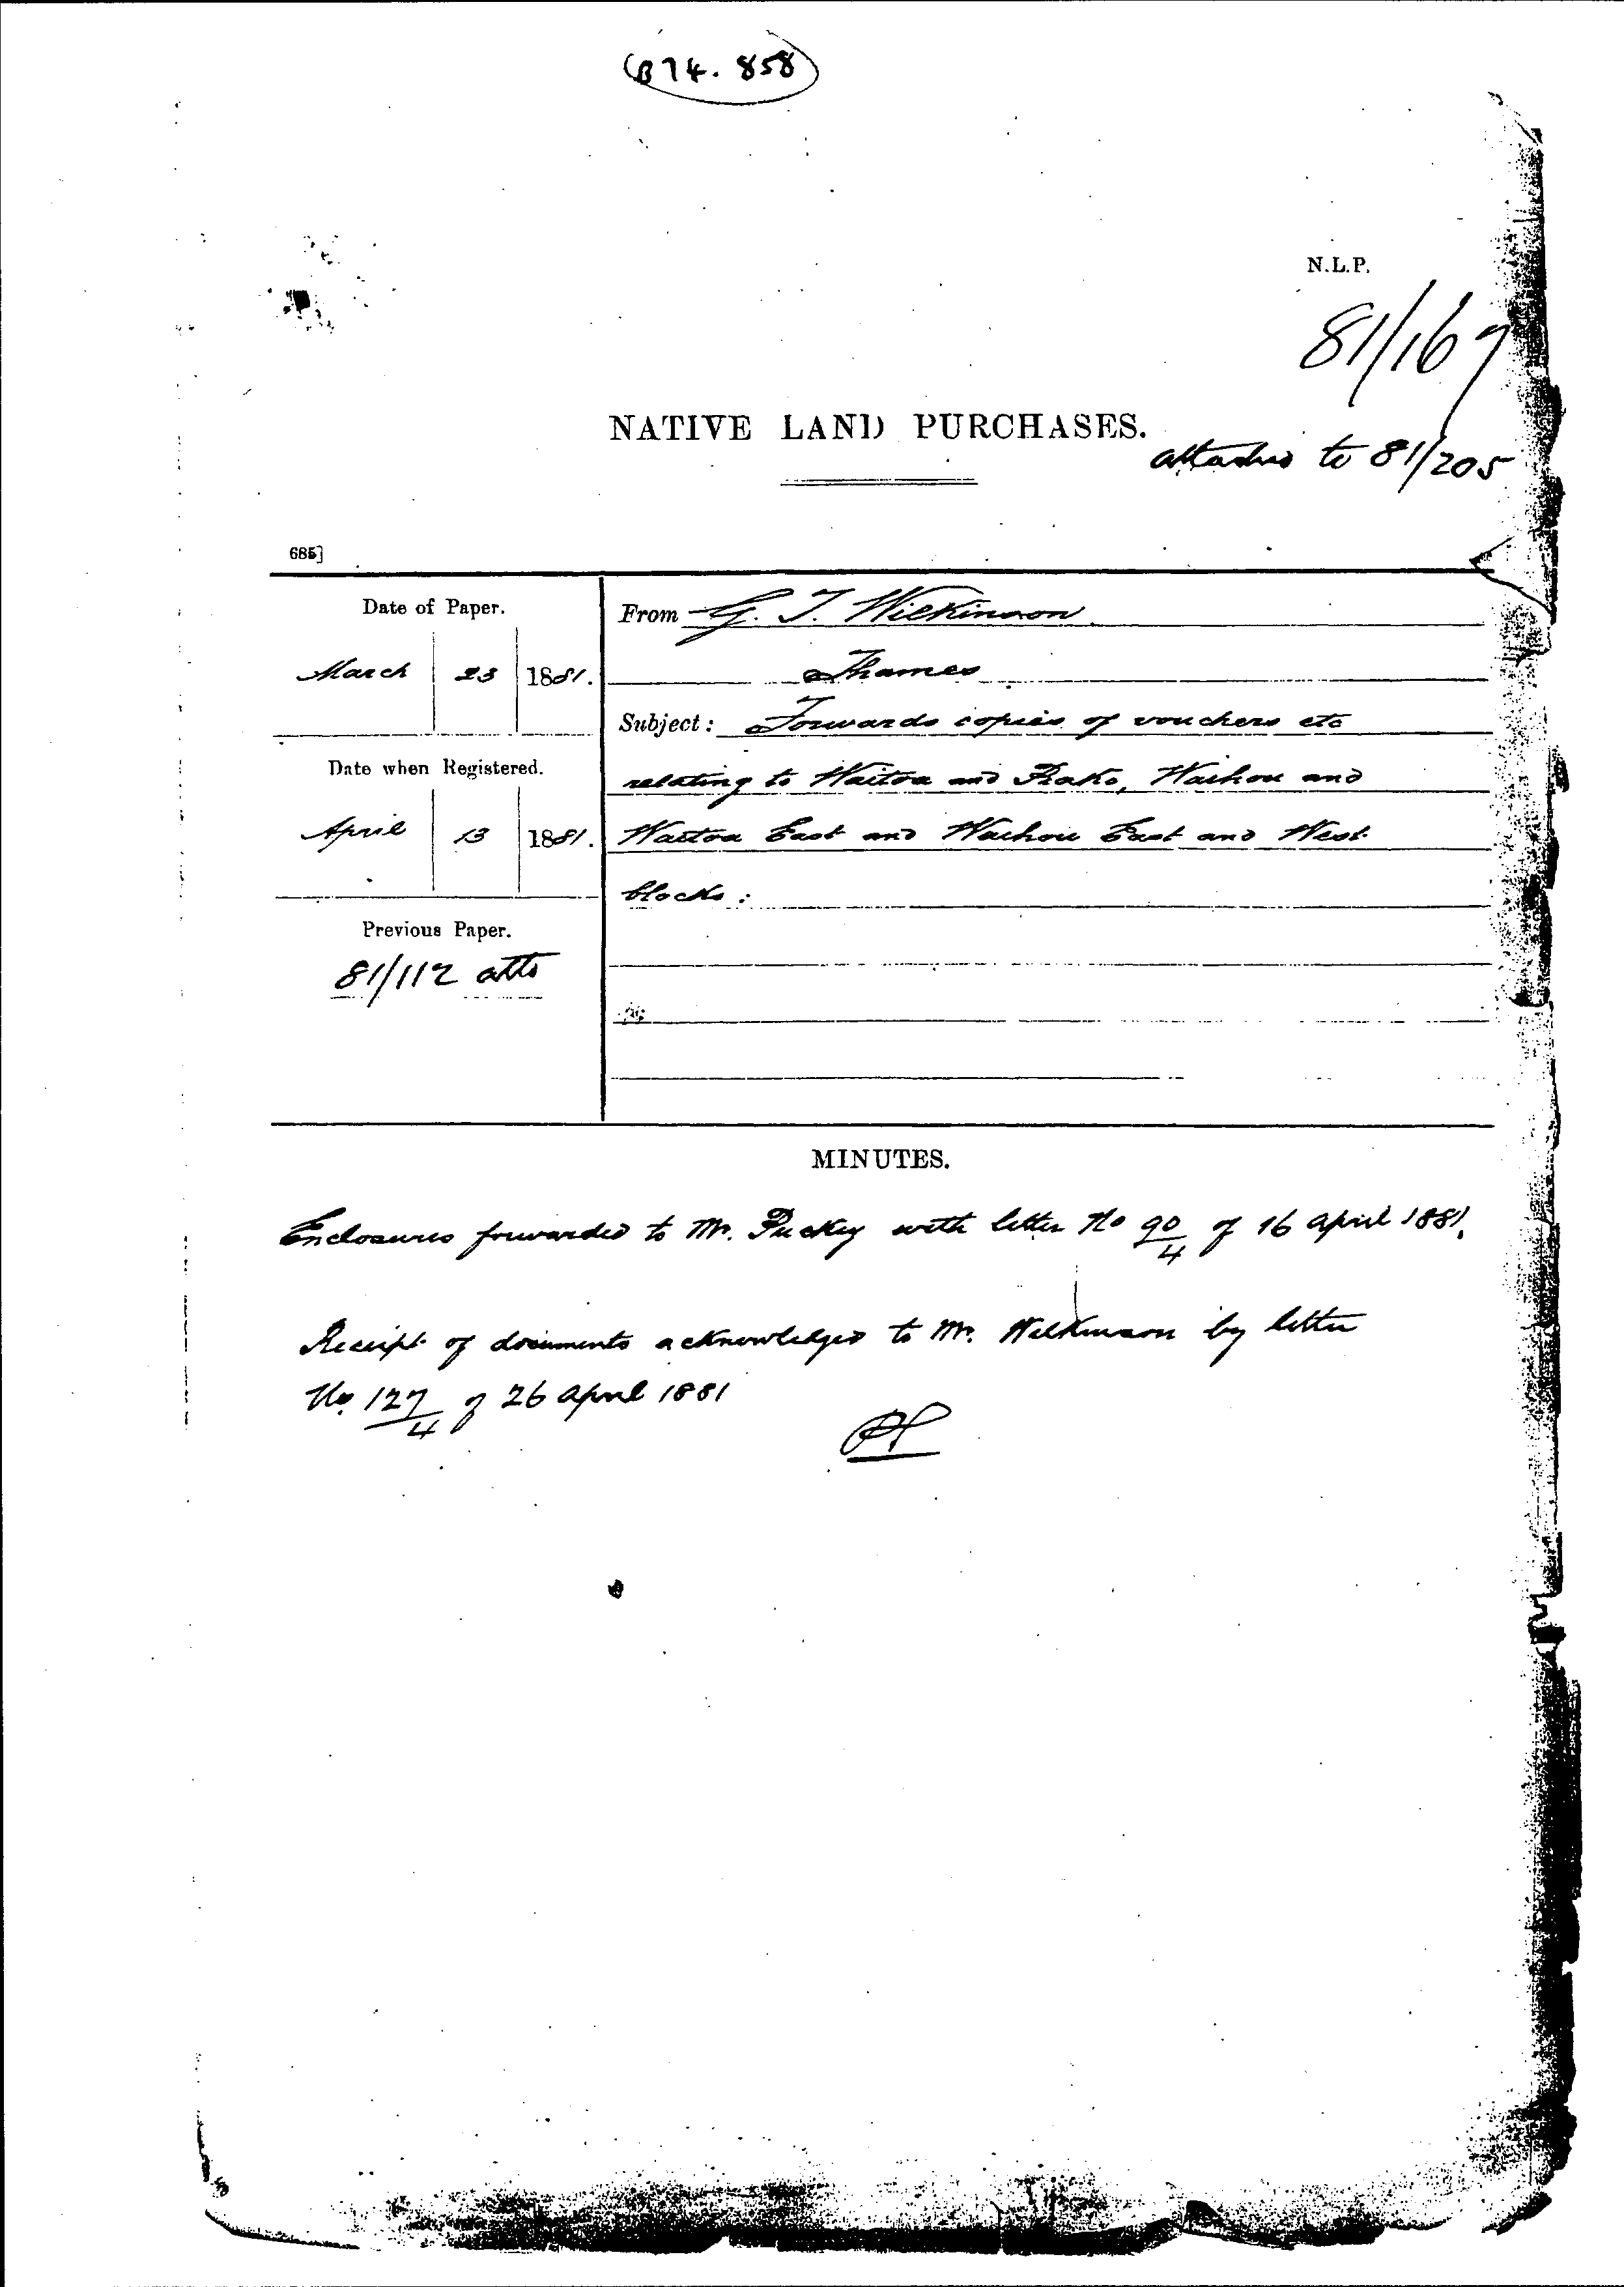 B74. 858
N.L.P.
81/167
NATIVE LAND PURCHASES.
attached to 81/205
685]
Date of Paper.
March 23 1881.
Date when Registered.
April 13 1881.
Previous Paper.
81/112 attd
From G. T. Wilkinson
Thames
Subject: Forwards copies of vouchers etc
relating to Waitoa and Piako, Waihou and
Waitoa East and Waihou East and West
blocks:
MINUTES.
Enclosures forwarded to Mr. Puckey with letter No 90/4 of 16 April 1881.
Receipt of documents acknowledged to Mr. Wilkinson by letter
No. 127/4 of 26 April 1881